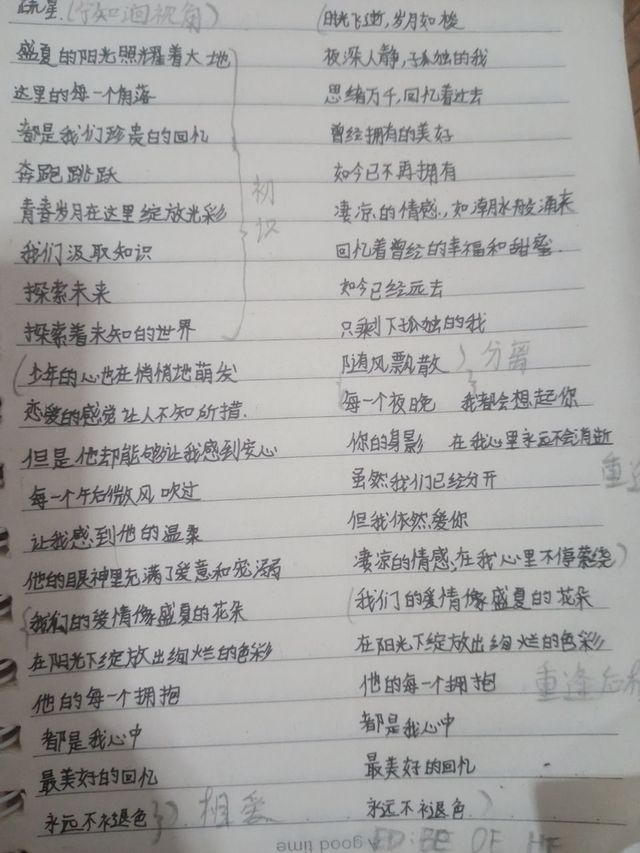 疏星.(宁知洄视角)
盛夏的阳光照耀着大地
这里的每一个角落
都是我们珍贵的回忆
奔跑跳跃
青春岁月在这里绽放光彩
我们汲取知识
探索未来
探索着未知的世界
初识
(少年的心也在悄悄地萌发
恋爱的感觉让人不知所措.
但是他却能够让我感到安心
每一个午后微风吹过
让我感到他的温柔
他的眼神里充满了爱意和宠溺
我们的爱情像盛夏的花朵
在阳光下绽放出绚烂的色彩
他的每一个拥抱
都是我心中
最美好的回忆
永远不褪色
相爱
(时光飞逝,岁月如梭
夜深人静,孤独的我
思绪万千,回忆着过去
曾经拥有的美好
如今已不再拥有
凄凉的情感,如潮水般涌来
回忆着曾经的幸福和甜蜜.
如今已经远去
只剩下孤独的我
随风飘散)
分离
每一个夜晚 我都会想起你
你的身影 在我心里永远不会消逝
虽然我们已经分开
但我依然爱你
凄凉的情感,在我心里不停萦绕)
重逢
(我们的爱情像盛夏的花朵
在阳光下绽放出绚烂的色彩
他的每一个拥抱
都是我心中
最美好的回忆
永远不褪色)
重逢后
A good time
ED:BE OF HE